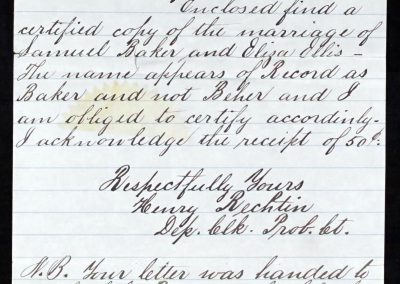 Enclosed find a
certified copy of the marriage of
Samuel Baker and Eliza Ellis -
The name appears of Record as
Baker and not Beher and I
am obliged to certify accordinly -
I acknowledge the receipt of 50¢.
Respectfully Yours
Henry Rechtin
Dep. Clk. Prob. Ct.
N.B. Your letter was handed to